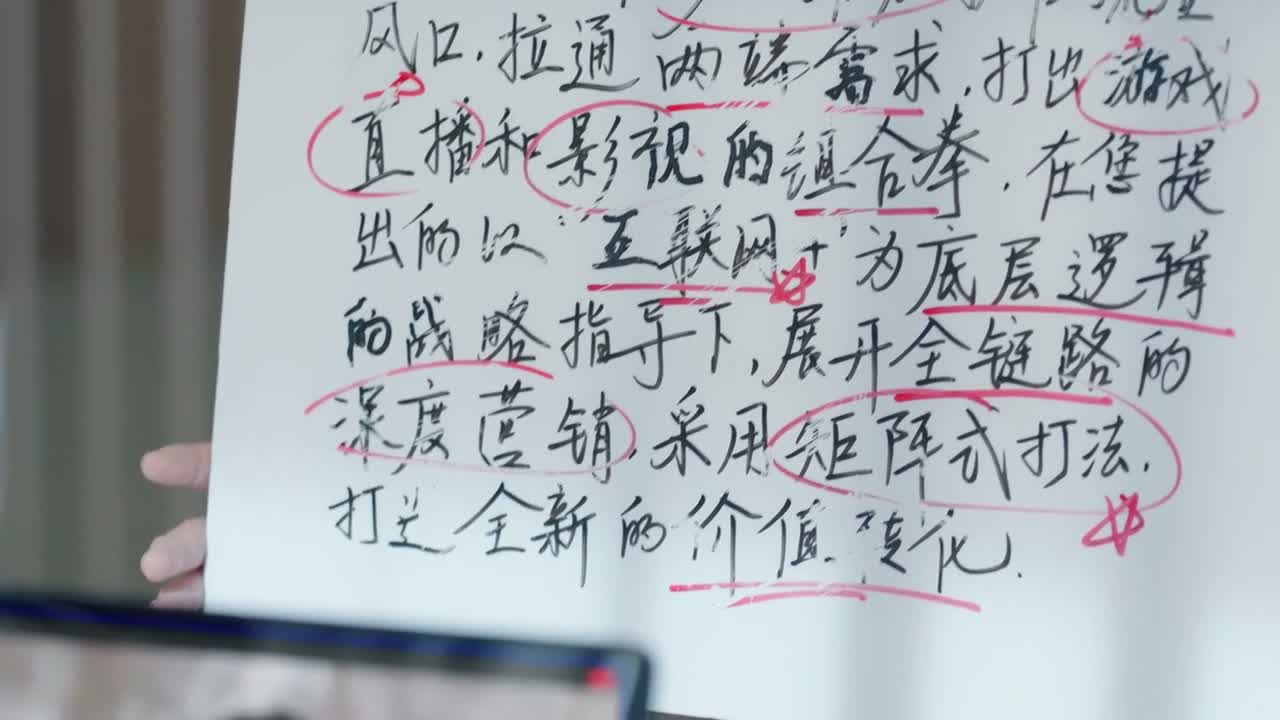 风口,拉通两端需求,打出游戏
直播和影视的组合拳,在您提
出的以“互联网+”为底层逻辑
的战略指导下,展开全链路的
深度营销,采用矩阵式打法,
打造全新的价值转化.